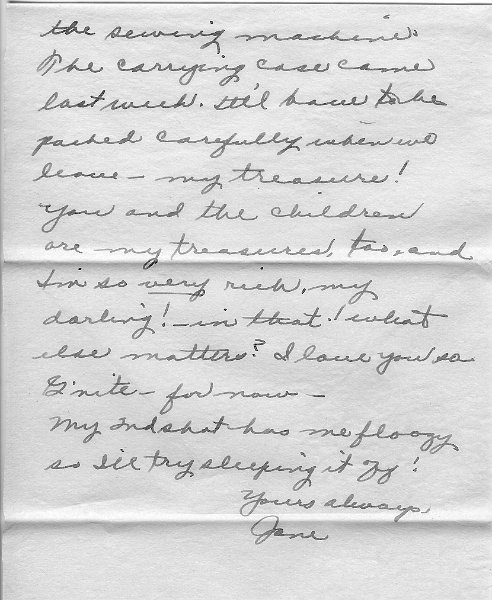 the sewing machine.
The carrying case came
last week. It'll have to be
packed carefully when we
leave — my treasure!
You and the children
are my treasures, too, and
I'm so very rich, my
darling! — in that! what
else matters? I love you so
G'nite — for now —
My 2nd shot has me floozy
so I'll try sleeping it off!
Yours always
Jane